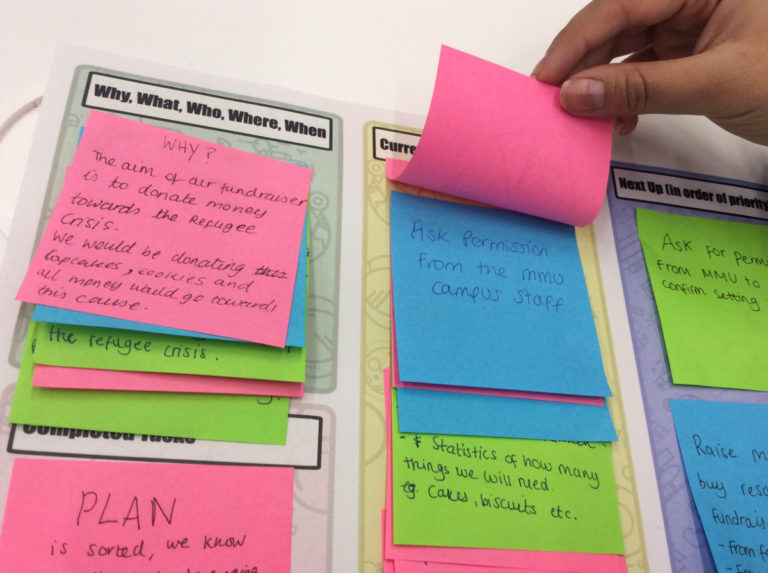 Why, What, Who, Where, When
WHY?
The aim of our fundraiser
is to donate money
towards the Refugee
Crisis.
We would be donating
Cupcakes, cookies and
all money would go towards
this cause.
the refugee crisis.
Completed Tasks
PLAN
is sorted, we know
Curre
Ask Permission
from the MMU
campus staff.
- & Statistics of how many
things we will need.
eg. Cakes, biscuits etc.
Next Up (in order of priority
Ask for permi
from MMU to
confirm setting
Raise m
buy reso
fundrais
- From f